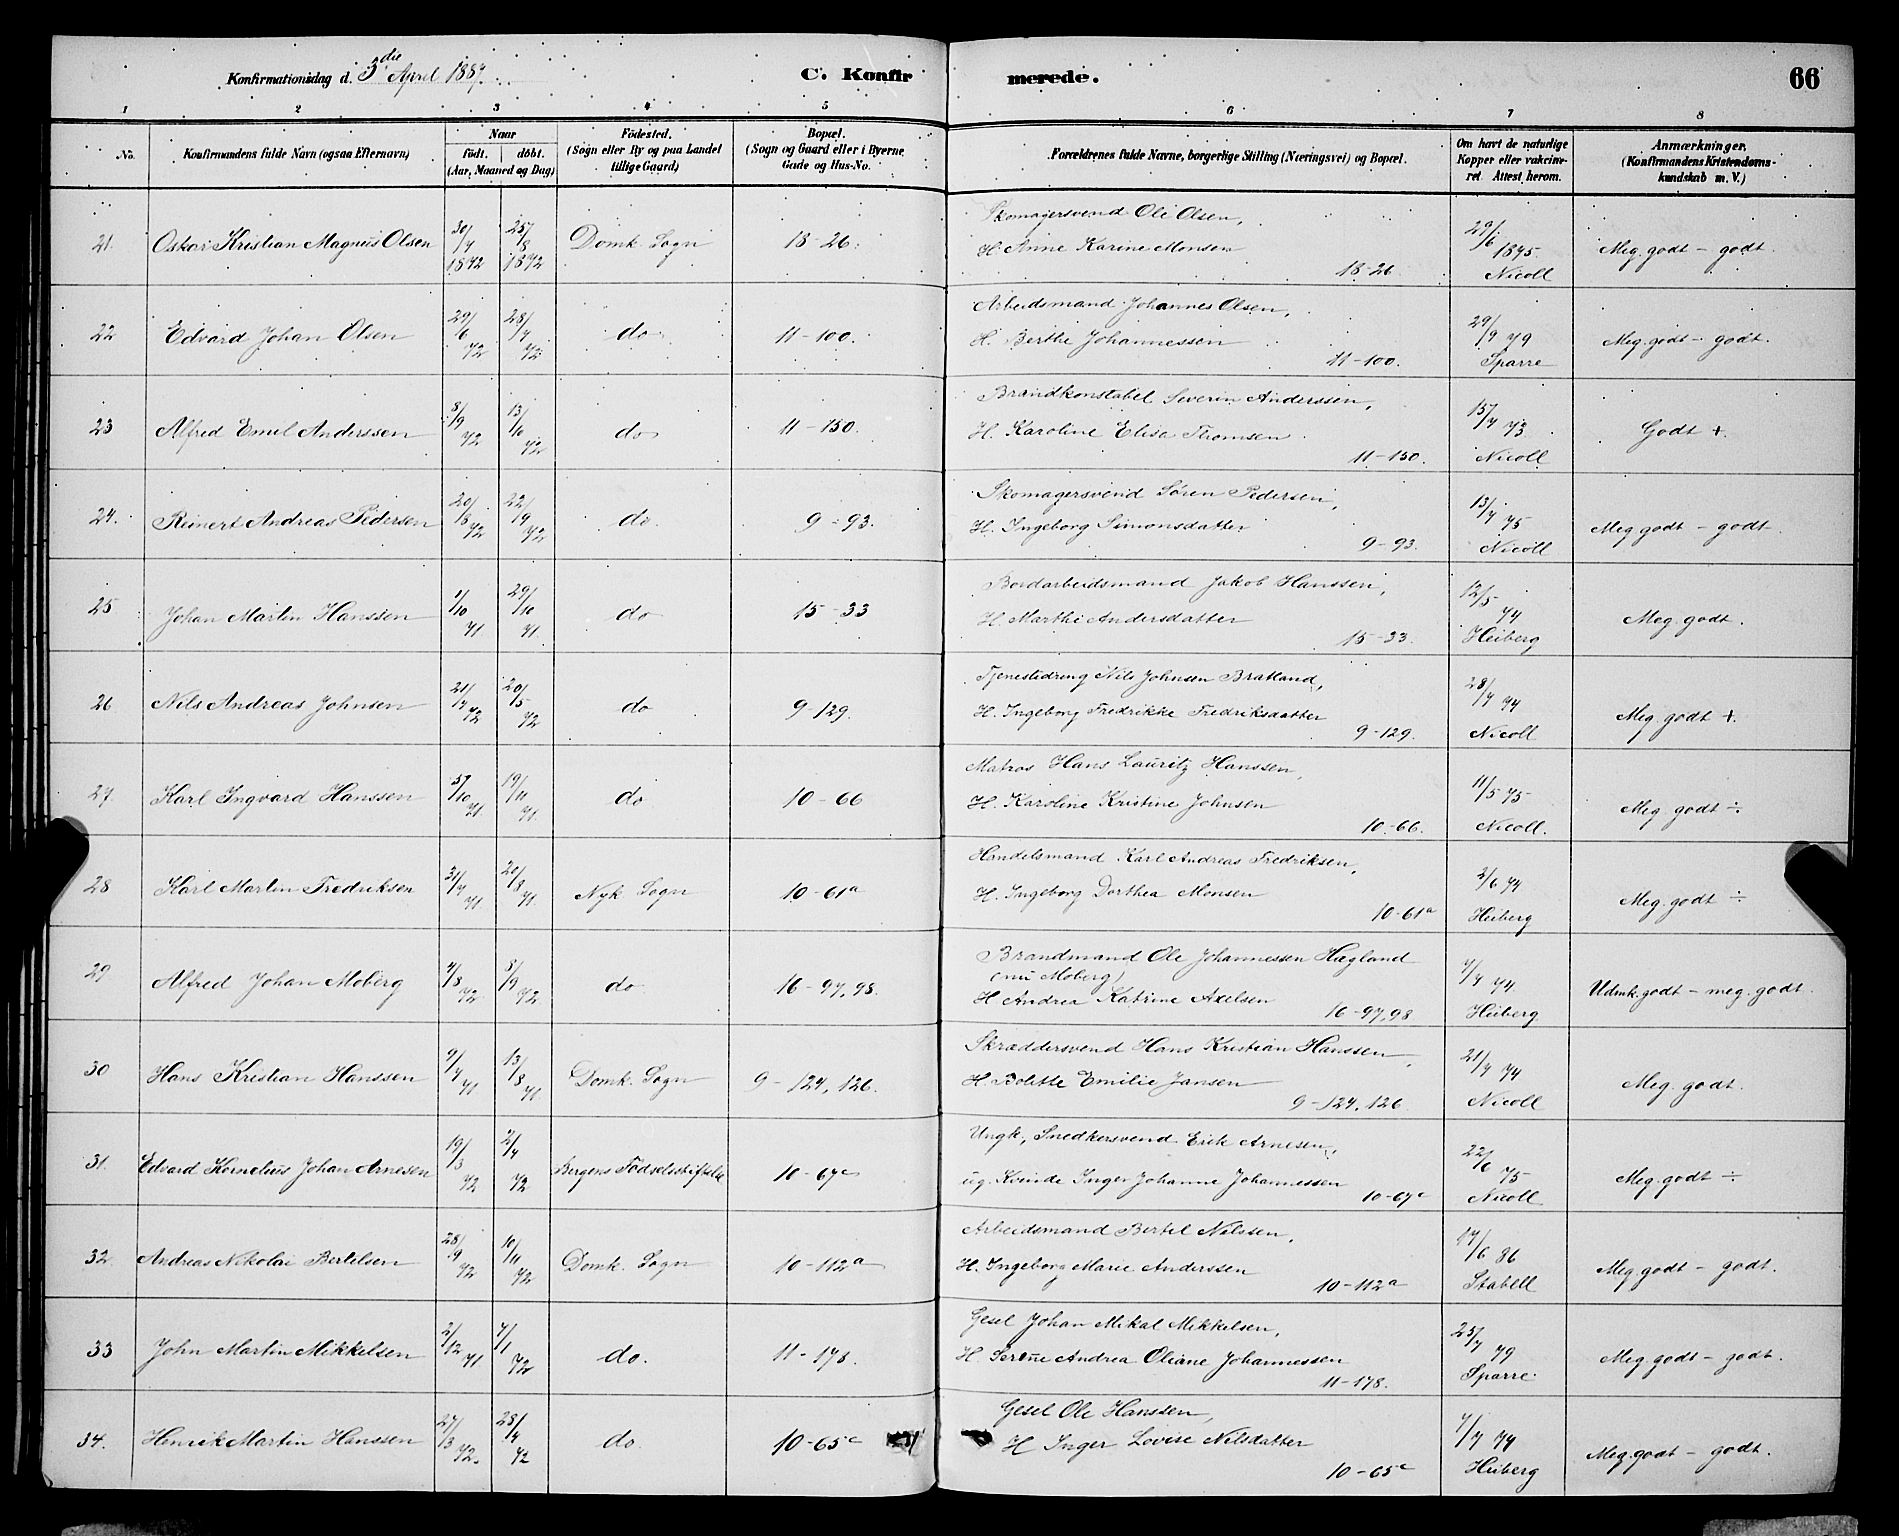 Konfirmationsdag d. 3die April 1887.
C. Konfirmerede.
66
1 2 3 4 5 6 7 8
No.
Konfirmandens fulde Navn (ogsaa Efternavn)
Naar
födt. döbt.
(Aar, Maaned og Dag)
Födested.
(Sogn eller By og paa Landet
tillige Gaard)
Bopæl.
(Sogn og Gaard eller i Byerne
Gade og Hus-No.
Forældrenes fulde Navne, borgerlige Stilling (Næringsvei) og Bopæl.
Om havt de naturlige
Kopper eller vakcine-
ret. Attest herom.
Anmærkninger.
(Konfirmandens Kristendoms-
kundskab m. V.)
21. Oskar Kristian Magnus Olsen 30/7 1872 25/8 1872 Domk. Sogn 18-26.
Skomagersvend Ole Olsen,
H. Anne Karine Monsen
18-26.
29/6 1875 Nicoll
Meg. godt - godt.
22 Edvard Johan Olsen 29/6 72 28/7 72 do 11-100.
Arbeidsmand Johannes Olsen,
H. Berthe Johannessen
11-100.
29/9 79 Sparre
Meg. godt - godt.
23 Alfred Emil Anderssen 8/9 72 13/10 72 do 11-150.
Brandkonstabel Severin Anderssen,
H. Karoline Elisa Thomsen
11-150.
15/7 73 Nicoll
Godt +.
24. Reinert Andreas Pedersen 20/8 72 22/9 72 do. 9-93.
Skomagersvend Sören Pedersen,
H. Ingeborg Simonsdatter
9-93.
13/7 75 Nicoll
Meg godt - godt
25 Johan Martin Hanssen 1/10 71 29/10 71 do 15-33
Bordarbeidsmand Jakob Hanssen,
H. Marthe Andersdatter
15-33.
12/5 74 Heiberg
Meg. godt.
26 Nils Andreas Johnsen 21/4 72 20/5 72 do 9-129.
Tjenestedreng Nils Johnsen Bratland,
H. Ingeborg Fredrikke Fredriksdatter
9-129.
28/7 74 Nicoll
Meg. godt +.
27. Karl Ingvard Hanssen 5/10 71 19/11 71 do 10-66
Matros Hans Lauritz Hanssen,
H. Karoline Kristine Johnsen
10-66.
11/5 75 Nicoll.
Meg godt ÷.
28 Karl Martin Fredriksen 31/7 71 20/8 71. Nyk. Sogn 10-61a
Handelsmand Karl Andreas Fredriksen,
H. Ingeborg Dorthea Monsen
10-61a
2/6 74 Heiberg
Meg. godt ÷
29 Alfred Johan Moberg 4/8 72 8/9 72. do 16-97,98.
Brandmand Ole Johannessen Hægland
(nu Moberg)
H Andrea Katrine Axelsen
16-97,98
7/7 74 Heiberg
Udmk. godt - meg. godt.
30 Hans Kristian Hanssen 9/7 71 13/8 71. Domk. Sogn 9-124, 126.
Skræddersvend Hans Kristian Hanssen,
H. Bolette Emilie Jansen
9-124, 126
21/7 74 Nicoll
Meg. godt.
31. Edvard Kornelius Johan Arnesen 19/3 72 2/4 72 Bergens Födselsstiftelse 10-67c
Ungk. Snedkersvend Erik Arnesen,
ug. Kvinde Inger Johanne Johannessen
10-67c
22/6 75 Nicoll
Meg. godt ÷
32 Andreas Nikolai Bertelsen 28/9 72 10/11 72 Domk. Sogn 10-112a
Arbeidsmand Bertel Nilssen,
H. Ingeborg Marie Anderssen
10-112a
14/6 86 Stabell
Meg. godt - godt.
33 John Martin Mikkelsen 2/12 71 7/1 72 do. 11-178.
Gesel Johan Mikal Mikkelsen,
H. Serene Andrea Oliane Johannessen
11-178.
25/7 79 Sparre
Meg. godt - godt.
34. Henrik Martin Hanssen 27/3 72. 28/4 72 do. 10-65c
Gesel Ole Hanssen,
H Inger Lovise Nilsdatter
10-65c
7/7 74 Heiberg
Meg. godt - godt.